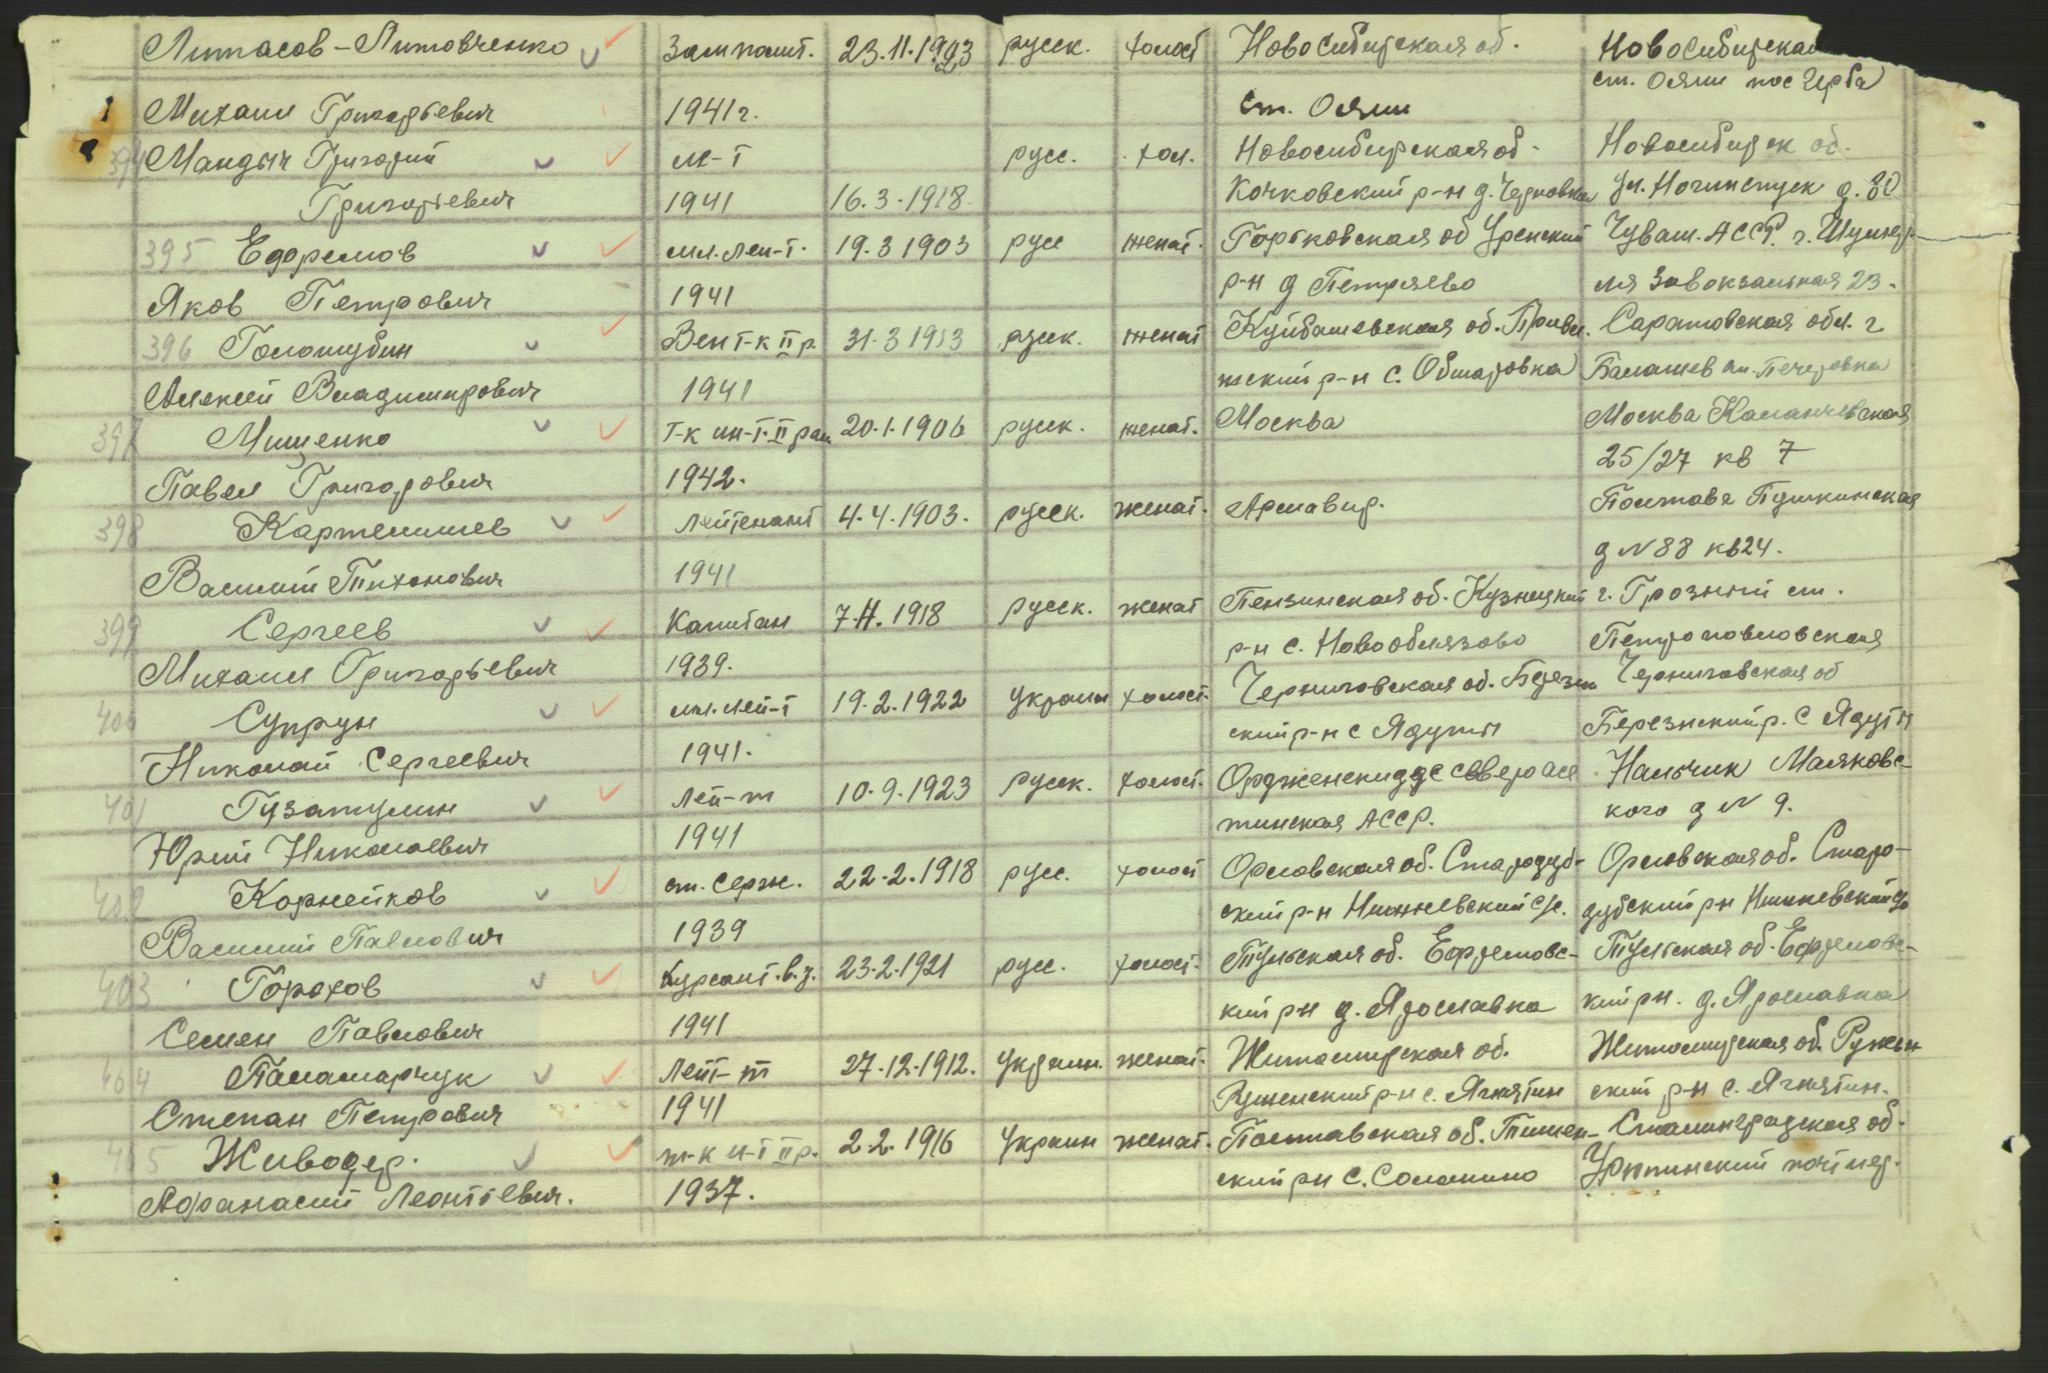 Литасов-Литовченко Замполит. 23.11.1923 русск. холост Новосибирская об. Новосибирская
Михаил Григорьевич 1941г. ст. Ояш ст. Ояш пос Герба
394 Мандыч Григорий м-т русс. хол. Новосибирская об. Новосибирск об.
Григорьевич 1941 16.3.1918 Кочковский р-н д. Черновка ул. д. 30
395 Ефремов мл. лей-т. 19.3 1903 русс женат. Горьковская об Уренский Чуваш. АССР. г. Шумер
Яков Петрович 1941 р-н д Петряево ля Завокзальная 23.
396 Голошубин Воен т-к II р. 31.3 1913 русск. женат Куйбашевская об. Приво. Саратовская обл. г
Алексей Владимирович 1941 жский р-н с. Обшаровка Балашев ул. Печеровка
397 Мищенко Т-к ин-т. II ран 20.1.1906 русск. женат. Москва Москва Каланчевская
Павел Григорович 1942. 25/27 кв 7
398 Картелишев Лейтенант 4.4.1903. русск. женат. Армавир. Полтава Пушкинская
Василий Тихонович 1941 д N 88 кв 24.
399 Сергеев Капитан 7.11.1918 русск. женат Пензинская об. Кузнецкий г. Грозный ст.
Михаил Григорьевич 1939. р-н с. Новооблязово Петропавловская
400 Супрун мл. лей-т 19.2.1922 украин холост. Черниговская об. Березн Черниговская об
Николай Сергеевич 1941. ский р-н с Ядуты Березнский р. с Ядуты
401 Гузатулин Лей-т 10.9.1923 русск. холост. Орджекидзе северо ос Нальчик Маяковс-
Юрий Николаевич 1941 тинская АССР. кого д N 9.
402 Корнейков ст. серж. 22.2.1918 русс. холост Орловская об. Стародуб- Орловская об. Старо-
Василий Павлович 1939 ский р-н с/с. дубский рн
403 Горохов Курсант. в.у. 23.2.1921 русс. холост. Тульская об. Ефремовс- Тульская об. Ефремовс-
Семен Павлович 1941 кий р-н д. Ярославка кий рн. д. Ярославка
404 Паламарчук Лейт-т 27.12.1912. украин. женат. Житомирская об. Житомирская об. Ружын
Степан Петрович 1941 Руженский р-н с. Ягнятин ский р-н с. Ягнятин.
405 Живодер. т-к и-т II р. 2.2.1916 украин женат. Полтавская об. Сталинградская об.
Афанасий Леонтьевич. 1937. ский рн с. Солонино Урюпинский